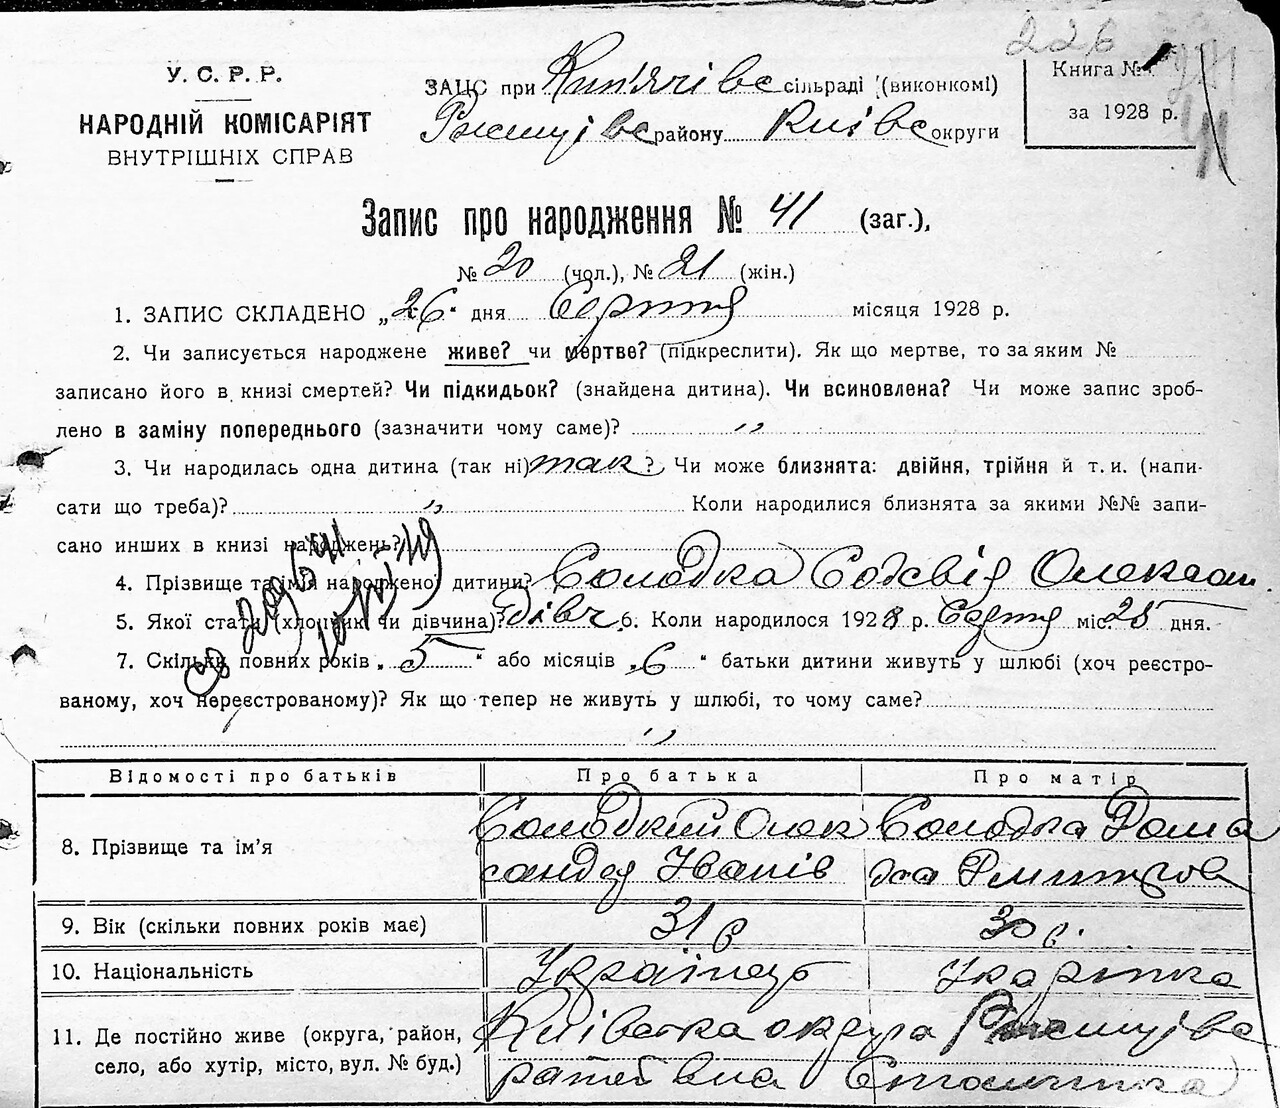 226
У. С. Р. Р.
НАРОДНІЙ КОМІСАРІЯТ
ВНУТРІШНІХ СПРАВ
ЗАЦС при Кип'ячівс сільраді (виконкомі)
Ржищівс району Київс округи
Книга №
за 1928 р.
41
Запис про народження № 41 (заг.),
№ 20 (чол.), № 21 (жін.)
1. ЗАПИС СКЛАДЕНО „26“ дня Серпня місяця 1928 р.
2. Чи записується народжене живе? чи мертве? (підкреслити). Як що мертве, то за яким №
записано його в книзі смертей? Чи підкидьок? (знайдена дитина). Чи всиновлена? Чи може запис зроб-
лено в заміну попереднього (зазначити чому саме)? „
3. Чи народилась одна дитина (так ні) так? Чи може близнята: двійня, трійня й т. и. (напи-
сати що треба)? „ Коли народилися близнята за якими №№ запи-
сано инших в книзі народжень?
4. Прізвище та імя народженої дитини? Солодка Олексан
5. Якої стати (хлопчик чи дівчина)? дівч. 6. Коли народилося 1928 р. Серпня міс. 25 дня.
7. Скільки повних років „5“ або місяців „6“ батьки дитини живуть у шлюбі (хоч реєстро-
ваному, хоч нереєстрованому)? Як що тепер не живуть у шлюбі, то чому саме?
„
Відомості про батьків Про батька Про матір
8. Прізвище та ім’я Солодкий Олек Солодка Дома
сандр Іванів ха Дмитров
9. Вік (скільки повних років має) 31 р 30 р.
10. Національність Українець Українка
11. Де постійно живе (округа, район, Київська округа Ржищівс
село, або хутір, місто, вул. № буд.)